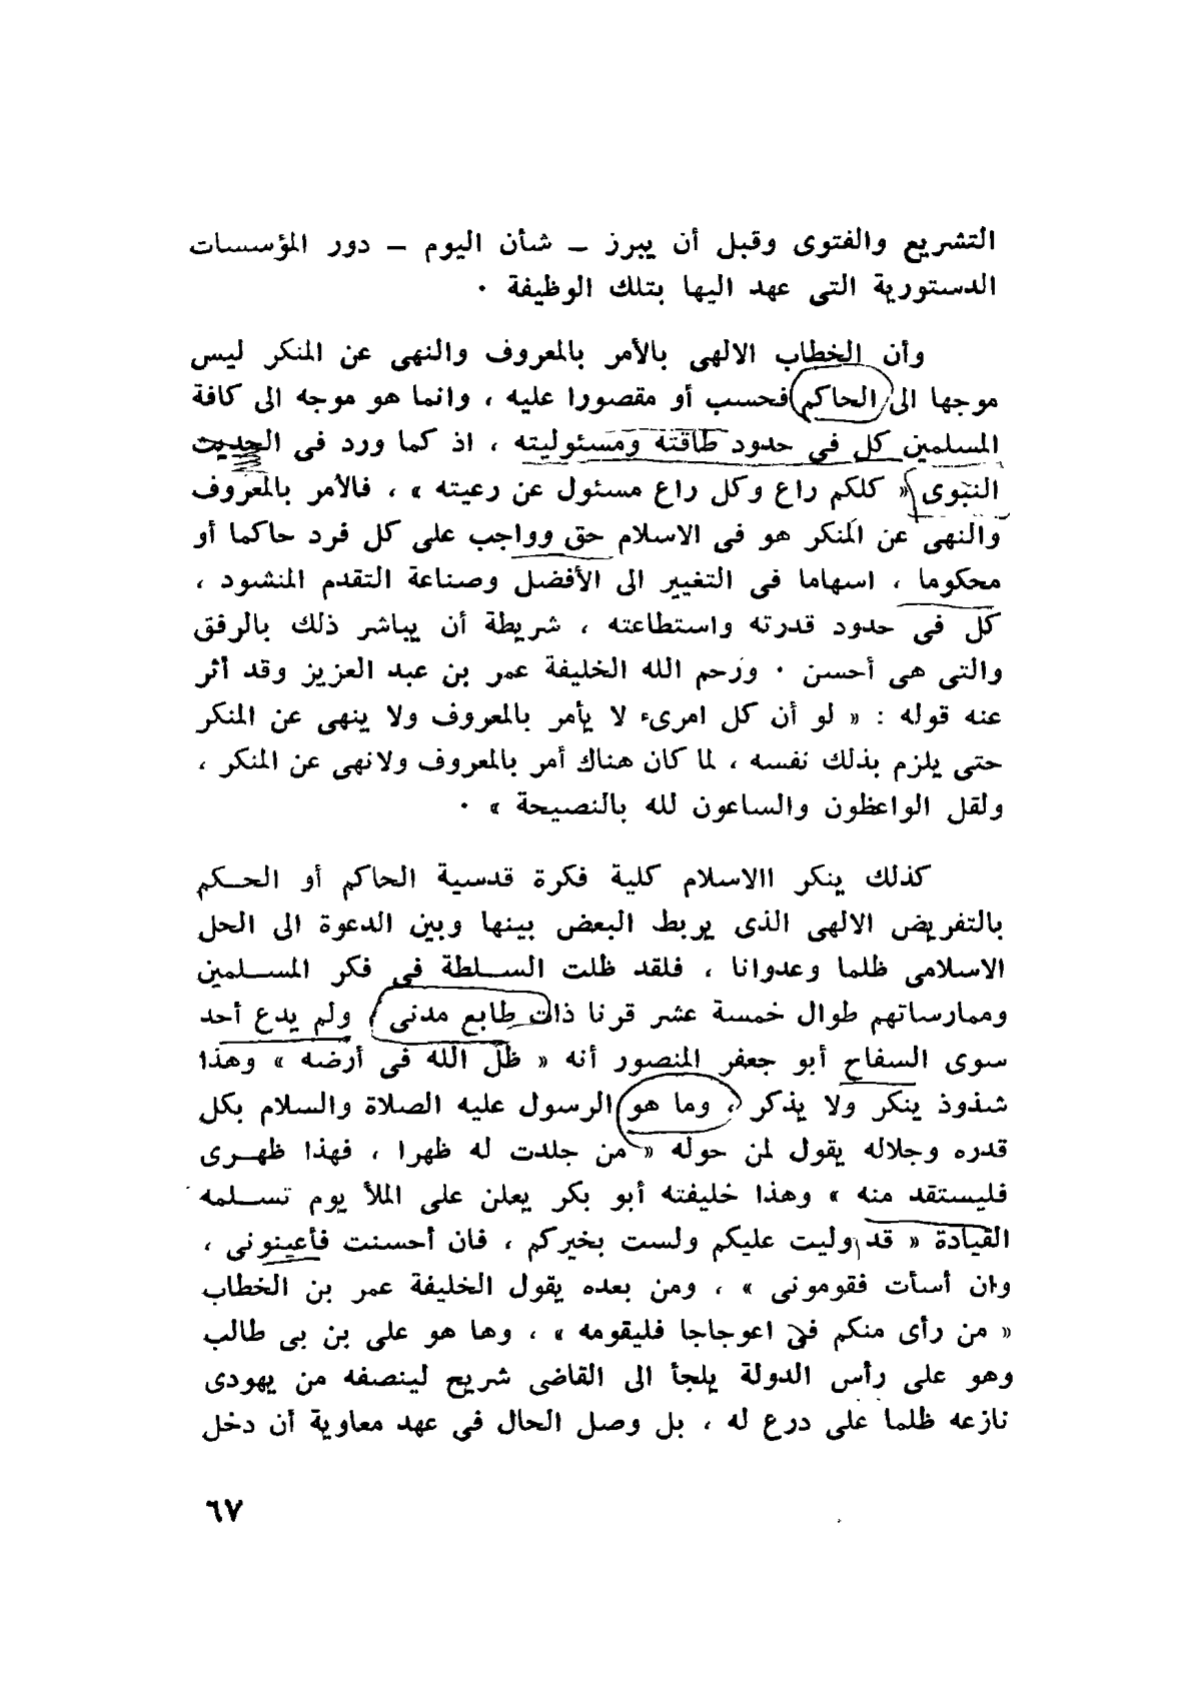 التشريع والفتوى وقبل أن يبرز ــ شأن اليوم ــ دور المؤسسات
الدستورية التى عهد اليها بتلك الوظيفة ٠
وأن الخطاب الالهى بالأمر بالمعروف والنهى عن المنكر ليس
موجها الى الحاكم فحسب أو مقصورا عليه ، وانما هو موجه الى كافة
المسلمين كل فى حدود طاقته ومسئوليته ، اذ كما ورد فى الحديث
النبوى « كلكم راع وكل راع مسئول عن رعيته » ، فالأمر بالمعروف
والنهى عن المنكر هو فى الاسلام حق وواجب على كل فرد حاكما أو
محكوما ، اسهاما فى التغيير الى الأفضل وصناعة التقدم المنشود ،
كل فى حدود قدرته واستطاعته ، شريطة أن يباشر ذلك بالرفق
والتى هى أحسن ٠ ورحم الله الخليفة عمر بن عبد العزيز وقد أثر
عنه قوله : « لو أن كل امرىء لا يأمر بالمعروف ولا ينهى عن المنكر
حتى يلزم بذلك نفسه ، لما كان هناك أمر بالمعروف ولانهى عن المنكر ،
ولقل الواعظون والساعون لله بالنصيحة » ٠
كذلك ينكر االاسلام كلية فكرة قدسية الحاكم أو الحـكم
بالتفريض الالهى الذى يربط البعض بينها وبين الدعوة الى الحل
الاسلامى ظلما وعدوانا ، فلقد ظلت السـلطة فى فكر المسـلمين
وممارساتهم طوال خمسة عشر قرنا ذات طابع مدنى ، ولم يدع أحد
سوى السفاح أبو جعفر المنصور أنه « ظل الله فى أرضه » وهذا
شذوذ ينكر ولا يذكر ، وما هو الرسول عليه الصلاة والسلام بكل
قدره وجلاله يقول لمن حوله « من جلدت له ظهرا ، فهذا ظهـرى
فليستقد منه » وهذا خليفته أبو بكر يعلن على الملأ يوم تسـلمه
القيادة « قد وليت عليكم ولست بخيركم ، فان أحسنت فأعينونى ،
وان أسأت فقومونى » ، ومن بعده يقول الخليفة عمر بن الخطاب
« من رأى منكم فى اعوجاجا فليقومه » ، وها هو على بن بى طالب
وهو على رأس الدولة يلجأ الى القاضى شريح لينصفه من يهودى
نازعه ظلما على درع له ، بل وصل الحال فى عهد معاوية أن دخل
٦٧